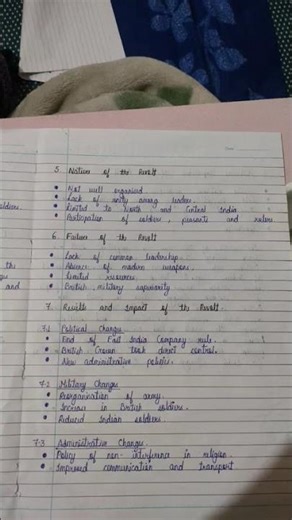 5. Nature of the Revolt
• Not well organised
• Lack of unity among leaders.
• Limited to North and Central India
• Participation of soldiers, peasants and rulers
6. Failure of the Revolt
• Lack of common leadership.
• Absence of modern weapons.
• Limited resources.
• British military superiority
7. Results and Impact of the Revolt.
7.1 Political Changes
• End of East India Company rule.
• British Crown took direct control.
• New administrative policies.
7.2 Military Changes
• Reorganisation of army.
• Increase in British soldiers.
• Reduced Indian soldiers
7.3 Administrative Changes
• Policy of non-interference in religion
• Improved communication and transport
soldiers
the
and